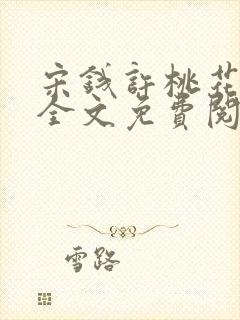 宋錢許桃花
全文免費閱
雪路